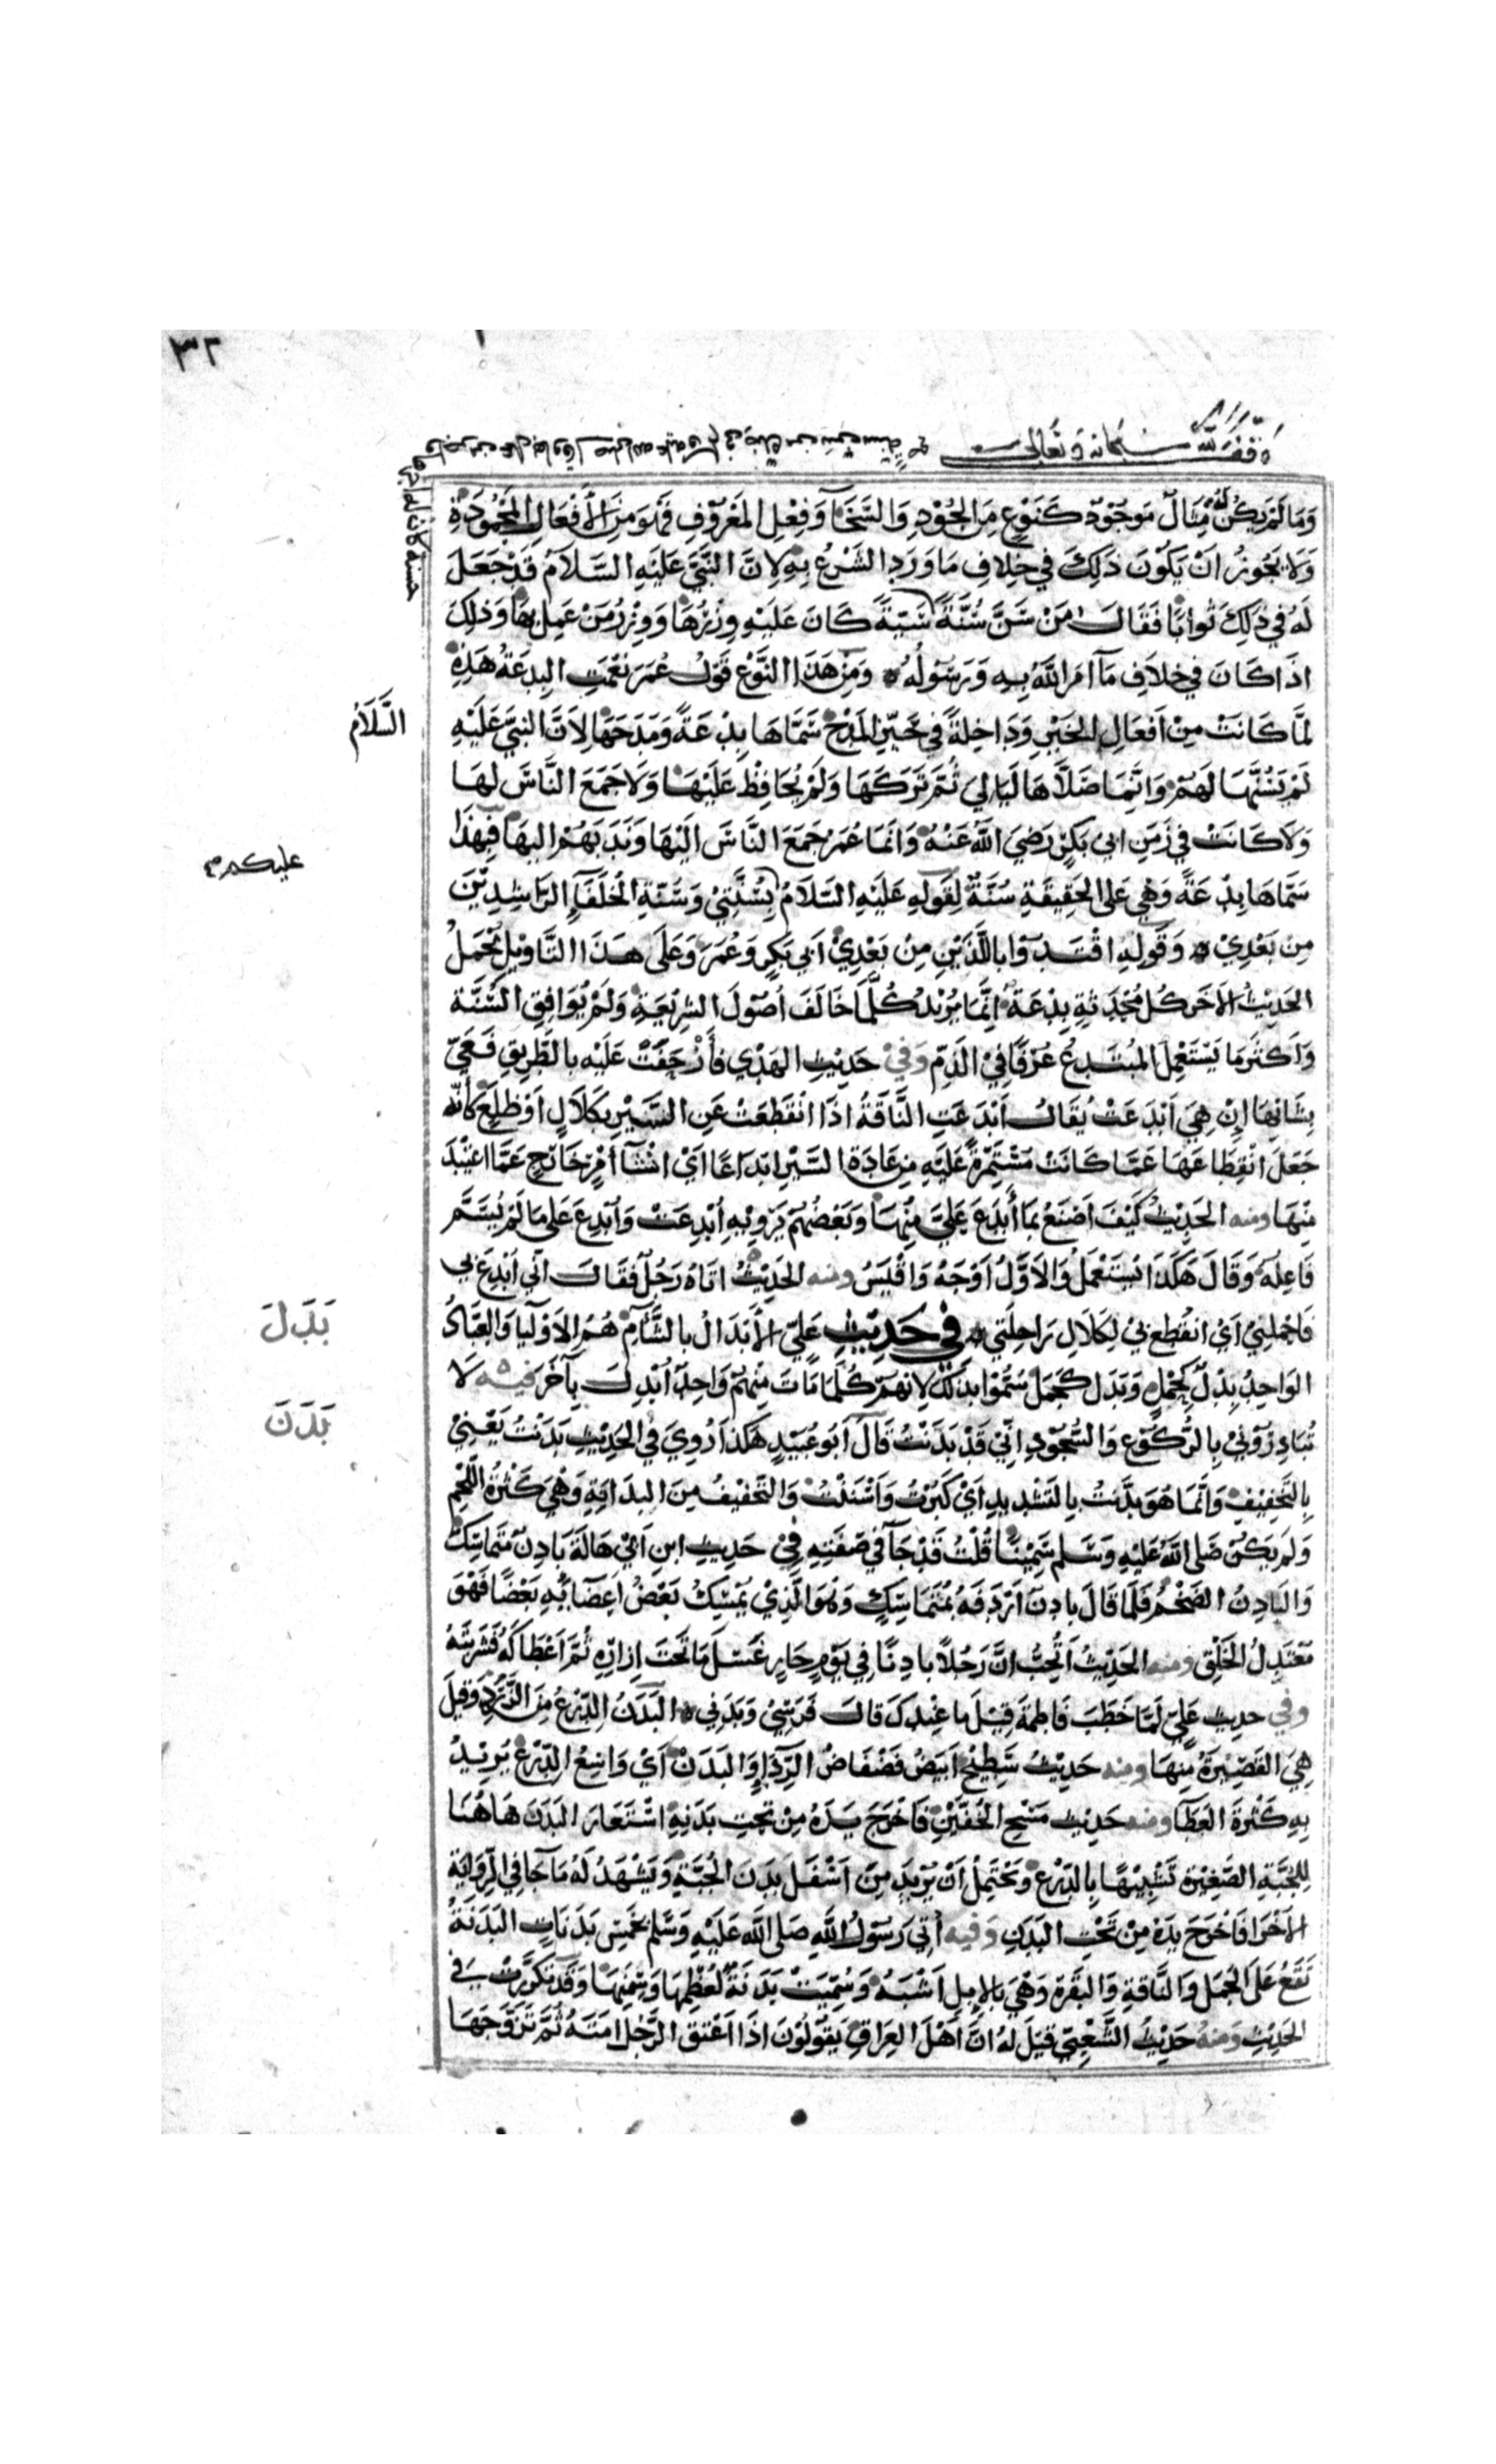 ٣٢
وقف لله سبحانه وتعالى
وَمَا لَمْ يَكُنْ لَهُ مِثَالٌ مَوْجُودٌ كَنَوْعٍ مِنَ الجُوْدِ وَالسَّخَآ وَفِعْلِ المَعْرُوْفِ فَهُوَ مِنَ الأَفْعَالِ المَحْمُودَةِ
وَلَا يَجُوزُ اَنْ يَكُوْنَ ذَلِكَ في خِلافِ مَا وَرَدَ الشَّرْعُ بِهِ لِاَنَّ النَّبِيَّ عَلَيْهِ السَّلَامُ قَدْ جَعَلَ
لَهُ في ذَلِكَ ثَوابًا فَقَالَ مَنْ سَنَّ سُنَّةً سَيِّئَةً كَانَ عَلَيْهِ وِزْرُهَا وَوِزْرُ مَنْ عَمِلَ بِهَا وَذلِكَ
اذَا كَانَ في خِلَافِ مَآ امَرَ اللّهُ بِهِ وَرَسُولُهُ وَمِنْ هَذَا النَّوْعِ قَوْلُ عُمَرَ نِعْمَتِ البِدعَةُ هَذِهِ
لمَّا كَانَتْ مِنْ اَفعَالِ الخَيْرِ وَدَاخِلةً في حَيِّزِ المَدْحِ سَمَّاهَا بِدْعَةً وَمَدَحَهَا لِاَنَّ النبيَّ عَلَيْهِ
السَّلَامُ
لَمْ يَسُنَّهَا لَهُمْ وَانَّمَا صَلَّاهَا لَيَالِيَ ثُمَّ تَرَكَهَا وَلَمْ يُحَافِظْ عَلَيْهَا وَلَا جَمَعَ النَّاسَ لهَا
وَلَا كَانَتْ في زَمَنِ ابي بَكرٍ رَضِيَ اللّهُ عَنْهُ وَانَمَا عُمَرُ جَمَعَ النَّاسَ الَيْهَا وَنَدَبَهُمْ اليهَا فَبِهَذَا
عليكم
سَمَّاهَا بِدْعَةً وَهْيَ عَلى الحَقِيقَةِ سُنَّةٌ لِقَولِهِ عَلَيْهِ السَّلَامُ بِسُنَّتِيْ وَسُنَّةِ الْخُلَفَآءِ الرَّاشِدِيْنَ
مِن بَعْدِيْ وَقَولِهِ اقْتَدُوْا بِاللَّذَيْنِ مِنْ بَعْدِيْ ابي بَكرٍ وَعُمَرَ وَعَلَى هَذَا التَّاوِيلِ يُحْمَلُ
الحَدِيْثُ الآخَرُ كُلُّ مُحْدَثَةٍ بِدْعَةٌ انَّمَا يُرِيْدُ كُلَّ مَا خَالَفَ اُصُوْلَ الشرِيْعَةِ وَلَمْ يُوَافِقِ السُّنَّة
وَاَكثَرُ مَا يَسْتَعْمِلُ المبْتَدِعُ عُرْفًا فِيْ الذَمِّ وَفِيْ حَدِيْثِ الهَدْي فَأَزْحَفَتْ عَلَيْه بِالطَّرِيقِ فَعَيَّ
بِشَانِهَا اِنْ هِيَ اَبْدَعَتْ يُقَالُ اَبْدَعَتِ النَّاقَةُ اذَا انْقَطَعَتْ عَنِ السَّيْرِ بِكَلَالٍ اَوْ ظَلَعٍ كَأنّه
جَعَلَ انْقِطَاعَهَا عَمَّا كَانَتْ مُسْتَمِرَّةً عَلَيْهِ مِن عَادَة السَّيْرِ ابدَاعًا اَيْ انْشَآ اَمْرٍ خَارِجٍ عَمَّا اعْتِيْدَ
مِنْهَا ومنه الحَدِيْثُ كَيْفَ اَصْنَعُ بِمَا أُبْدِعَ عَلَيَّ مِنْهَا وَبَعْضُهُمْ يَرْوِيْهِ اُبْدِعَتْ وَاُبْدِعَ عَلى مَا لَمْ يُسَمَّ
فَاعِلُهُ وَقَالَ هَكَذَا يُسْتَعْمَلُ وَالاَوَّلُ اَوْجَهُ وَاقْيَسُ ومنه الحَدِيْثُ اتَاهُ رَجُلٌ فقَالَ انّي اُبْدِعَ بي
بَدَلَ
فَاحْمِلْنِيْ اَيْ انْقُطِعَ بيْ لِكَلَالِ رَاحِلَتي في حَدِيْثِ عَليّ الأَبْدَالُ بِالشَّامِ هُمُ الاَوْلِيَا وَالعُبَّادُ
الوَاحِدُ بِدْلٌ كَحِمْلٍ وَبَدَل كَجَمَلٍ سُمُّوْا بذَلكَ لِانهُمْ كُلَمَا مَاتَ مِنْهُمْ وَاحِدٌ اُبْدِلَ بِآخَرَ فيه لَا
بَدَنَ
تُبَادِرُوْنيْ بِالرُّكُوْعِ وَالسُّجُوْدِ انّيْ قَدْ بَدَنْتُ قَالَ اَبو عُبَيْدٍ هَكَذَا رُوِيَ فِي الحَدِيْثِ بَدَنْتُ يَعْنِيْ
بِالتَّخفِيْفِ وَانَّمَا هُوَ بَدَّنتُ بِالتَشديدِ اَيْ كَبِرْتُ وَاَسْنَنْتُ وَالتَّخْفِيْفُ مِنَ البدَانَةِ وَهْيَ كَثْرَةُ اللَّحْمِ
وَلمْ يَكُنْ صَلى اللّهُ عَلَيْهِ وَسَلم سَمِيْنًا قُلْتُ قَدْ جَآ في صِفَتِهِ فِيْ حَدِيثِ ابنِ اَبيْ هَالَةَ بَادِنٌ مُتَمَاسِكٌ
وَالبَادِنُ الضَخْمُ فَلَمَا قَالَ بادِنٌ اَرْدَفَهُ بمُتَمَاسِكٍ وَهُوَ الَّذِيْ يُمْسِكُ بَعْضُ اَعِضَائِهِ بَعْضًا فَهْوَ
مُعْتَدِلُ الخَلْقِ ومنه الحَدِيْثُ اَتُحِبُّ انَّ رَجُلًا بادِنًا فِي يَوْمٍ حَارٍ غَسَلَ مَا تَحْتَ اِزارِهِ ثُمَّ اَعْطَاكَهُ فَشَرِبْتَهُ
وفي حديث عَليّ لمَّا خَطَبَ فَاطِمَةَ قِيْلَ ما عِنْدَكَ قالَ فَرَسِيْ وَبَدَني البَدَنُ الدِّرْعُ مِنَ الزَّرَدِ وَقِيلَ
هِيَ القَصِيْرَةُ مِنهَا ومنه حَدِيْثُ سَطِيْحٍ اَبيَضُ فَضْفَاضُ الرِّدَاءِ وَالبَدَنْ اَيْ وَاسِعُ الدِّرْعِ يُرِيْدُ
بِهِ كَثْرَةَ العَطَآ ومنه حَدِيْثُ مَسْحِ الخُفَّيْنِ فَاَخْرَجَ يَدَهُ مِنْ تَحْتِ بَدَنِهِ اسْتَعَارَ البَدَنَ هَاهُنَا
لِلْجُبَّةِ الصَّغِيْرَة تَشْبِيْهًا بِالدِّرْعِ وَيَحْتَمِلُ اَنْ يُرِيْدَ مِنْ اَسْفَلِ بَدَنِ الجُبَّةِ وَيَشْهَدُ لَهُ مَا جَآ فِي الرِّوَايَةِ
الاُخْرَا فَاَخْرَجَ يَدَهُ مِنْ تَحْتِ البَدَنِ وَفيه اُتِيَ رَسُوْلُ اللّهِ صَلى اللّه عَلَيْهِ وَسَلم بخَمْسِ بَدَنَاتٍ البَدَنَةُ
تَقَعُ عَلَى الجَمَلِ وَالنَّاقَةِ وَالبَقَرَةِ وَهْيَ بِالاِبِلِ اَشْبَهُ وَسُمِّيَتْ بَدَنَةً لعُظْمِهَا وَسِمَنِهَا وَقَدْ تَكَرَّرَتْ في
الحَدِيْثِ وَمنهُ حَدِيْثُ الشَّعْبِيّ قِيْلَ لهُ انَّ اَهْلَ العِرَاقِ يَقُوْلُوْنَ اذَا اَعْتَقَ الرَّجُلُ امَتَهُ ثُمَّ تَزَوَّجَهَا